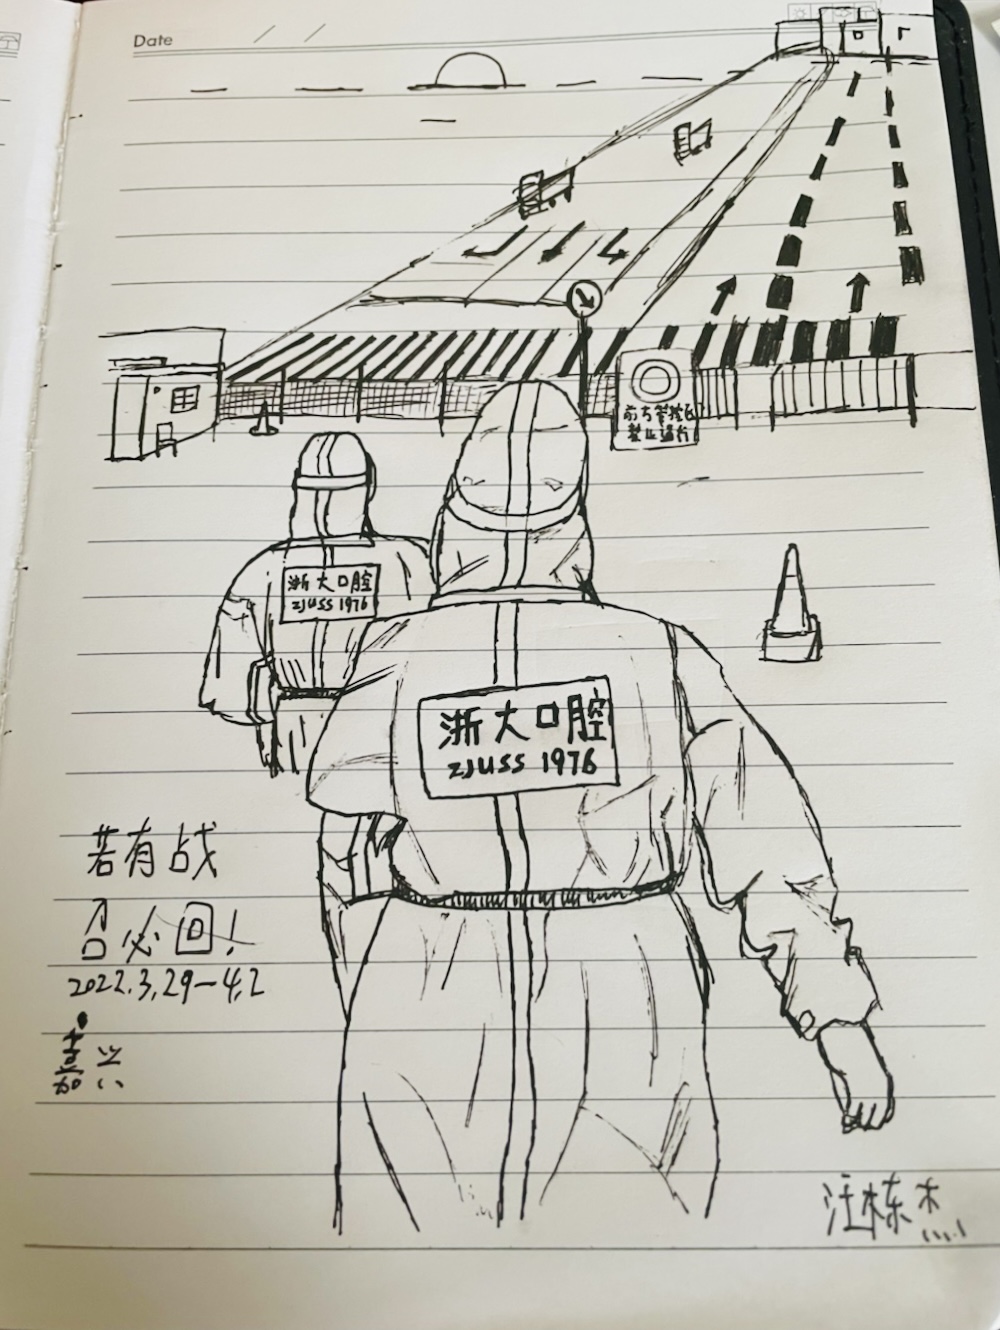 Date
前方管控区
禁止通行
浙大口腔
ZJUSS 1976
浙大口腔
ZJUSS 1976
若有战
召必回!
2022.3.29-4.2
嘉兴
汪栋杰